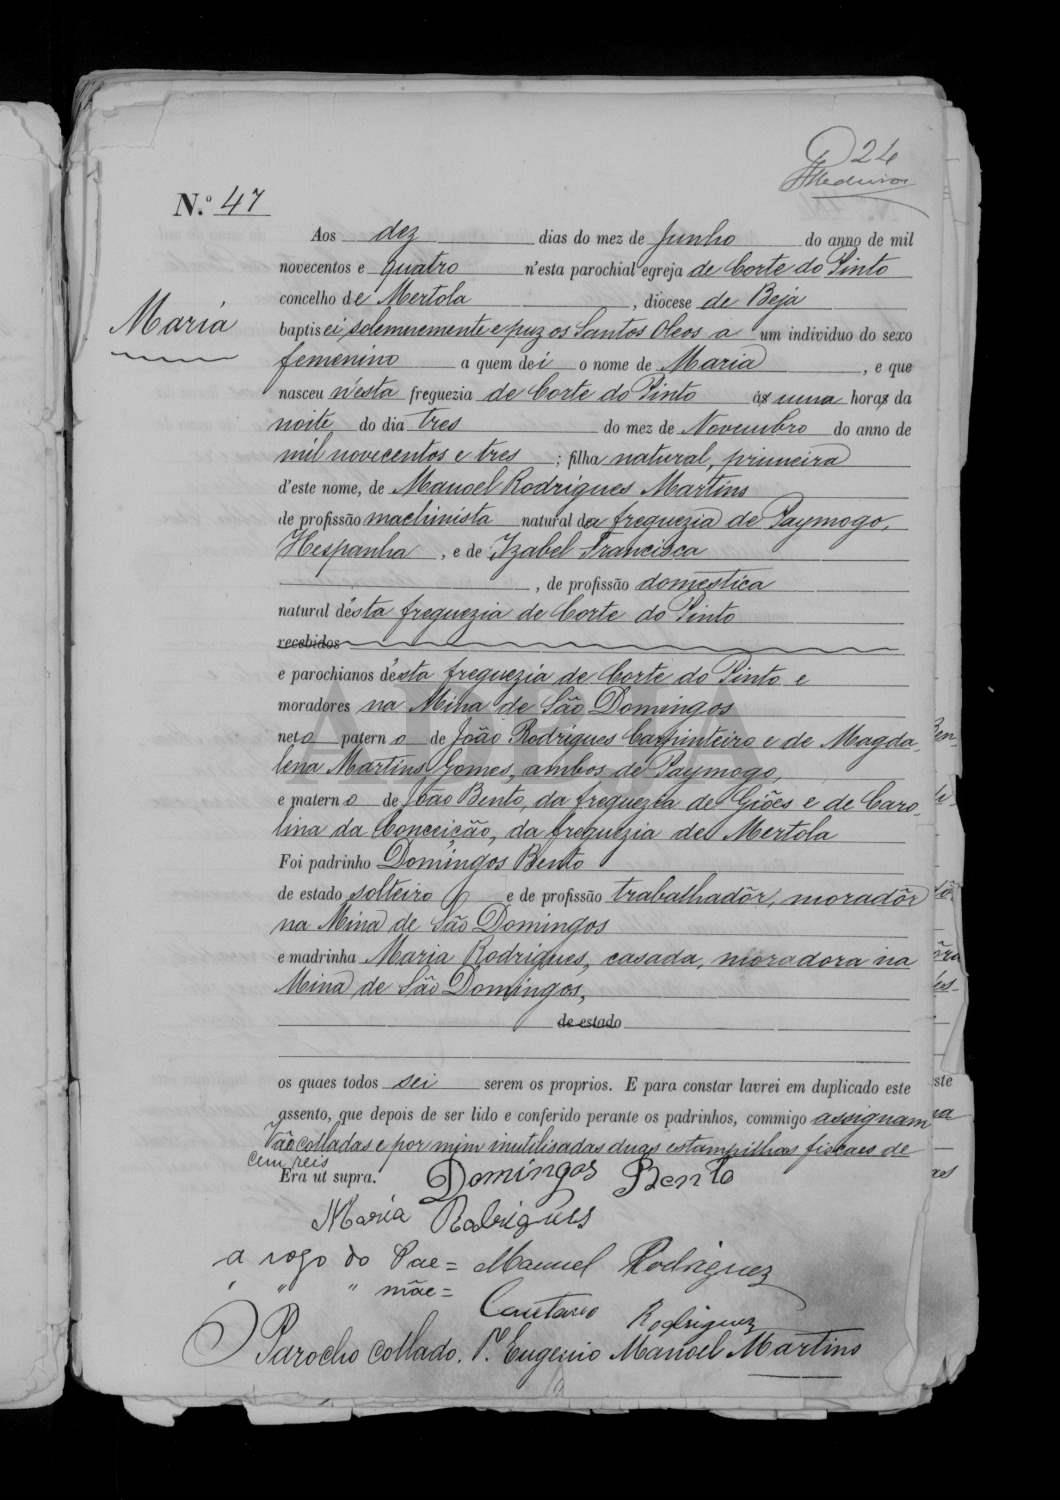 24
Medeiros
N.º 47
Aos dez dias do mez de Junho do anno de mil
novecentos e quatro n'esta parochial egreja de Corte do Pinto
concelho de Mertola, diocese de Beja
Maria
baptisei solemnemente e puz os Santos Oleos a um individuo do sexo
femenino a quem dei o nome de Maria, e que
nasceu n'esta freguezia de Corte do Pinto ás uma horas da
noite do dia tres do mez de Novembro do anno de
mil novecentos e tres; filha natural, primeira
d'este nome, de Manoel Rodrigues Martins
de profissão machinista natural da freguezia de Paymogo,
Hespanha, e de Izabel Francisca
, de profissão domestica
natural d'esta freguezia de Corte do Pinto
recebidos
e parochianos d'esta freguezia de Corte do Pinto e
moradores na Mina de São Domingos
neto paterno de João Rodrigues Carpinteiro e de Magda-
lena Martins Gomes, ambos de Paymogo,
e materno de João Bento, da freguezia de Giões e de Caro-
lina da Conceição, da freguezia de Mertola
Foi padrinho Domingos Bento
de estado solteiro e de profissão trabalhadôr, moradôr
na Mina de São Domingos
e madrinha Maria Rodrigues, casada, moradora na
Mina de São Domingos,
de estado
os quaes todos sei serem os proprios. E para constar lavrei em duplicado este
assento, que depois de ser lido e conferido perante os padrinhos, commigo assignam
Vão colladas e por mim inutilisadas duas estampilhas fiscaes de
cem reis
Era ut supra. Domingos Bento
Maria Rodrigues
a rogo do Pae = Manuel Rodriguez
" " " mãe = Caetano Rodriguez
O Parocho collado. P.e Eugenio Manoel Martins